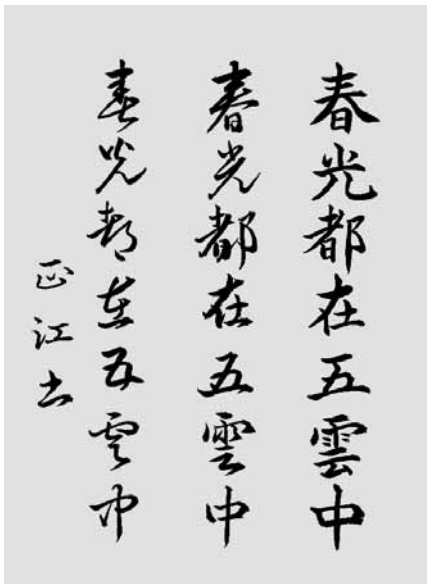 春光都在五雲中
春光都在五雲中
春光都在五雲中
正江书